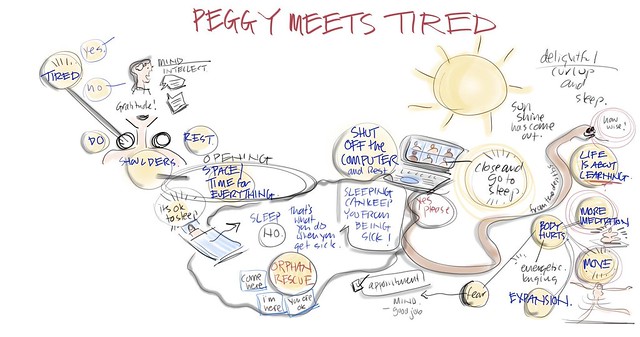 PEGGY MEETS TIRED
TIRED
yes.
no
MIND
INTELLECT.
Gratitude!
DO
REST.
SHOULDERS.
OPENING
SPACE/
Time for
EVERYTHING.
it's ok
to sleep!
SLEEP
NO.
That's
what
you do
when you
get sick.
ORPHAN
RESCUE
come
here
i'm
here
You are
ok
SHUT
OFF THE
COMPUTER
and Rest
SLEEPING
CAN KEEP
YOU FROM
BEING
SICK!
yes
please
Close and
Go to
Sleep.
sun
shine
has come
out.
delightful
curl up
and
sleep.
how
wise!
LIFE
IS ABOUT
LEARNING.
MORE
MEDITATION
MOVE
BODY
HURTS.
energetic.
EXPANSION.
fear
appointment
MIND
- good job